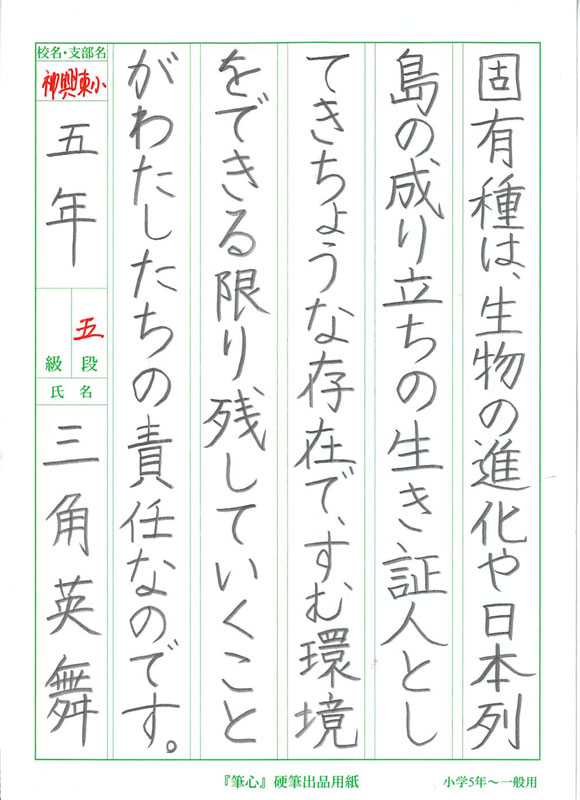 固有種は、生物の進化や日本列
島の成り立ちの生き証人とし
てきちょうな存在で、すむ環境
をできる限り残していくこと
がわたしたちの責任なのです。
校名・支部名
神興東小
五年
五
級 段
氏 名
三角英舞
『筆心』硬筆出品用紙
小学5年〜一般用